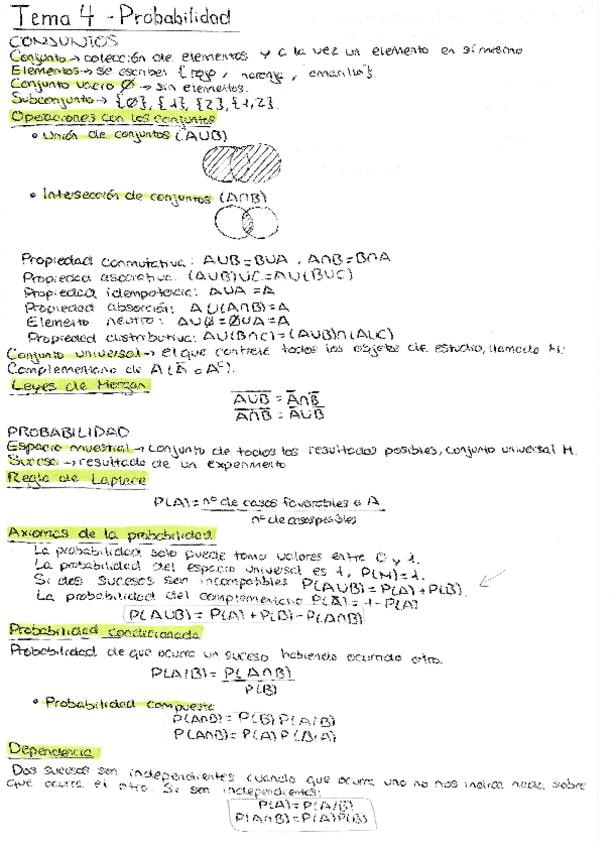 Tema 4 - Probabilidad
CONJUNTOS
Conjunto → colección de elementos y a la vez un elemento en sí mismo
Elementos → se escriben {"rojo", "naranja", "amarillo"}
Conjunto vacío ∅ → sin elementos.
Subconjunto → {∅}, {1}, {2}, {1,2}.
Operaciones con los conjuntos
• Unión de conjuntos (A∪B)
• Intersección de conjuntos (A∩B)
Propiedad conmutativa: A∪B=B∪A, A∩B=B∩A
Propiedad asociativa: (A∪B)∪C=A∪(B∪C)
Propiedad idempotencia: A∪A=A
Propiedad absorción: A∪(A∩B)=A
Elemento neutro: A∪∅=∅∪A=A
Propiedad distributiva: A∪(B∩C)=(A∪B)∩(A∪C)
Conjunto universal → el que contiene todos los objetos de estudio, llamado M.
Complementario de A (Ā o Aᶜ).
Leyes de Morgan
A̅∪̅B̅ = A̅∩B̅
A̅∩̅B̅ = A̅∪B̅
PROBABILIDAD
Espacio muestral → conjunto de todos los resultados posibles, conjunto universal M.
Suceso → resultado de un experimento
Regla de Laplace
P(A) = nº de casos favorables a A
nº de casos posibles
Axiomas de la probabilidad
La probabilidad solo puede tomar valores entre 0 y 1.
La probabilidad del espacio universal es 1, P(M)=1.
Si dos sucesos son incompatibles P(A∪B)=P(A)+P(B).
La probabilidad del complementario P(Ā)=1-P(A)
P(A∪B)=P(A)+P(B)-P(A∩B)
Probabilidad condicionada
Probabilidad de que ocurra un suceso habiendo ocurrido otro.
P(A/B) = P(A∩B)
P(B)
• Probabilidad compuesta
P(A∩B)=P(B)P(A/B)
P(A∩B)=P(A)P(B/A)
Dependencia
Dos sucesos son independientes cuando que ocurra uno no nos indica nada sobre
que ocurra el otro. Si son independientes:
P(A)=P(A/B)
P(A∩B)=P(A)P(B)